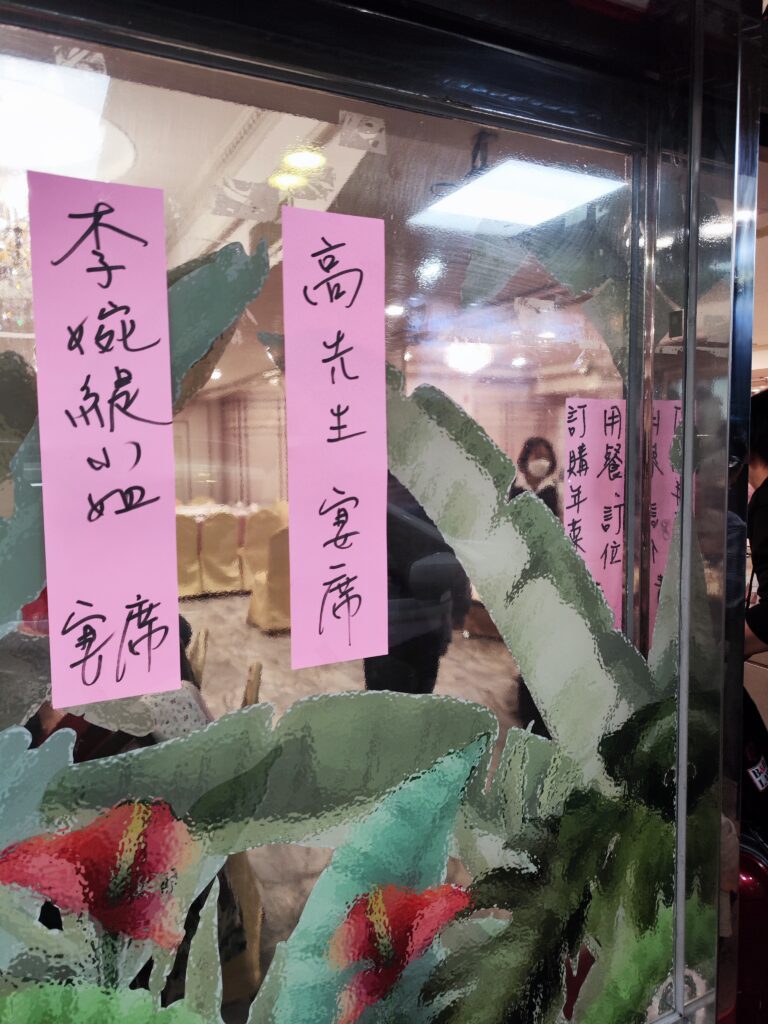 李婉緹小姐 宴席
高先生 宴席
用餐訂位
訂購年菜